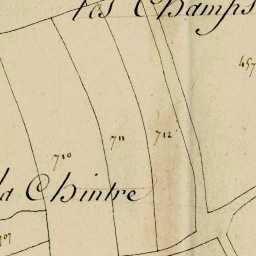 les Champs
457
712
711
710
la Chintre
707